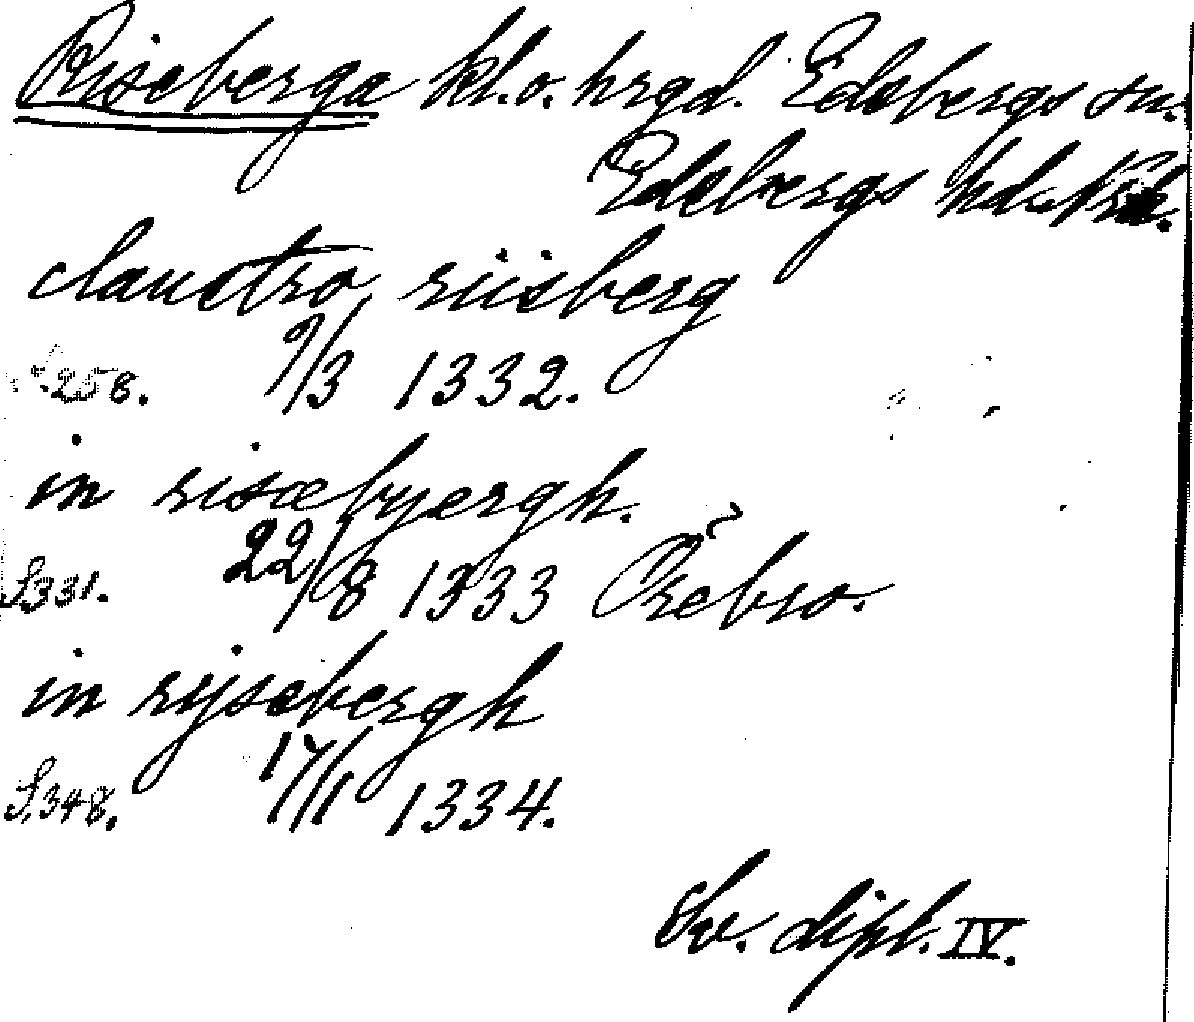 Riseberga kl. o. hrgd. Edsbergs sn.
Edsbergs hd.
claustro riisberg
S. 258. 9/3 1332.
in risæbyærgh.
S. 331. 22/8 1333 Örebro.
in rysæbergh
S. 348. 17/1 1334.
Sv. dipl. IV.